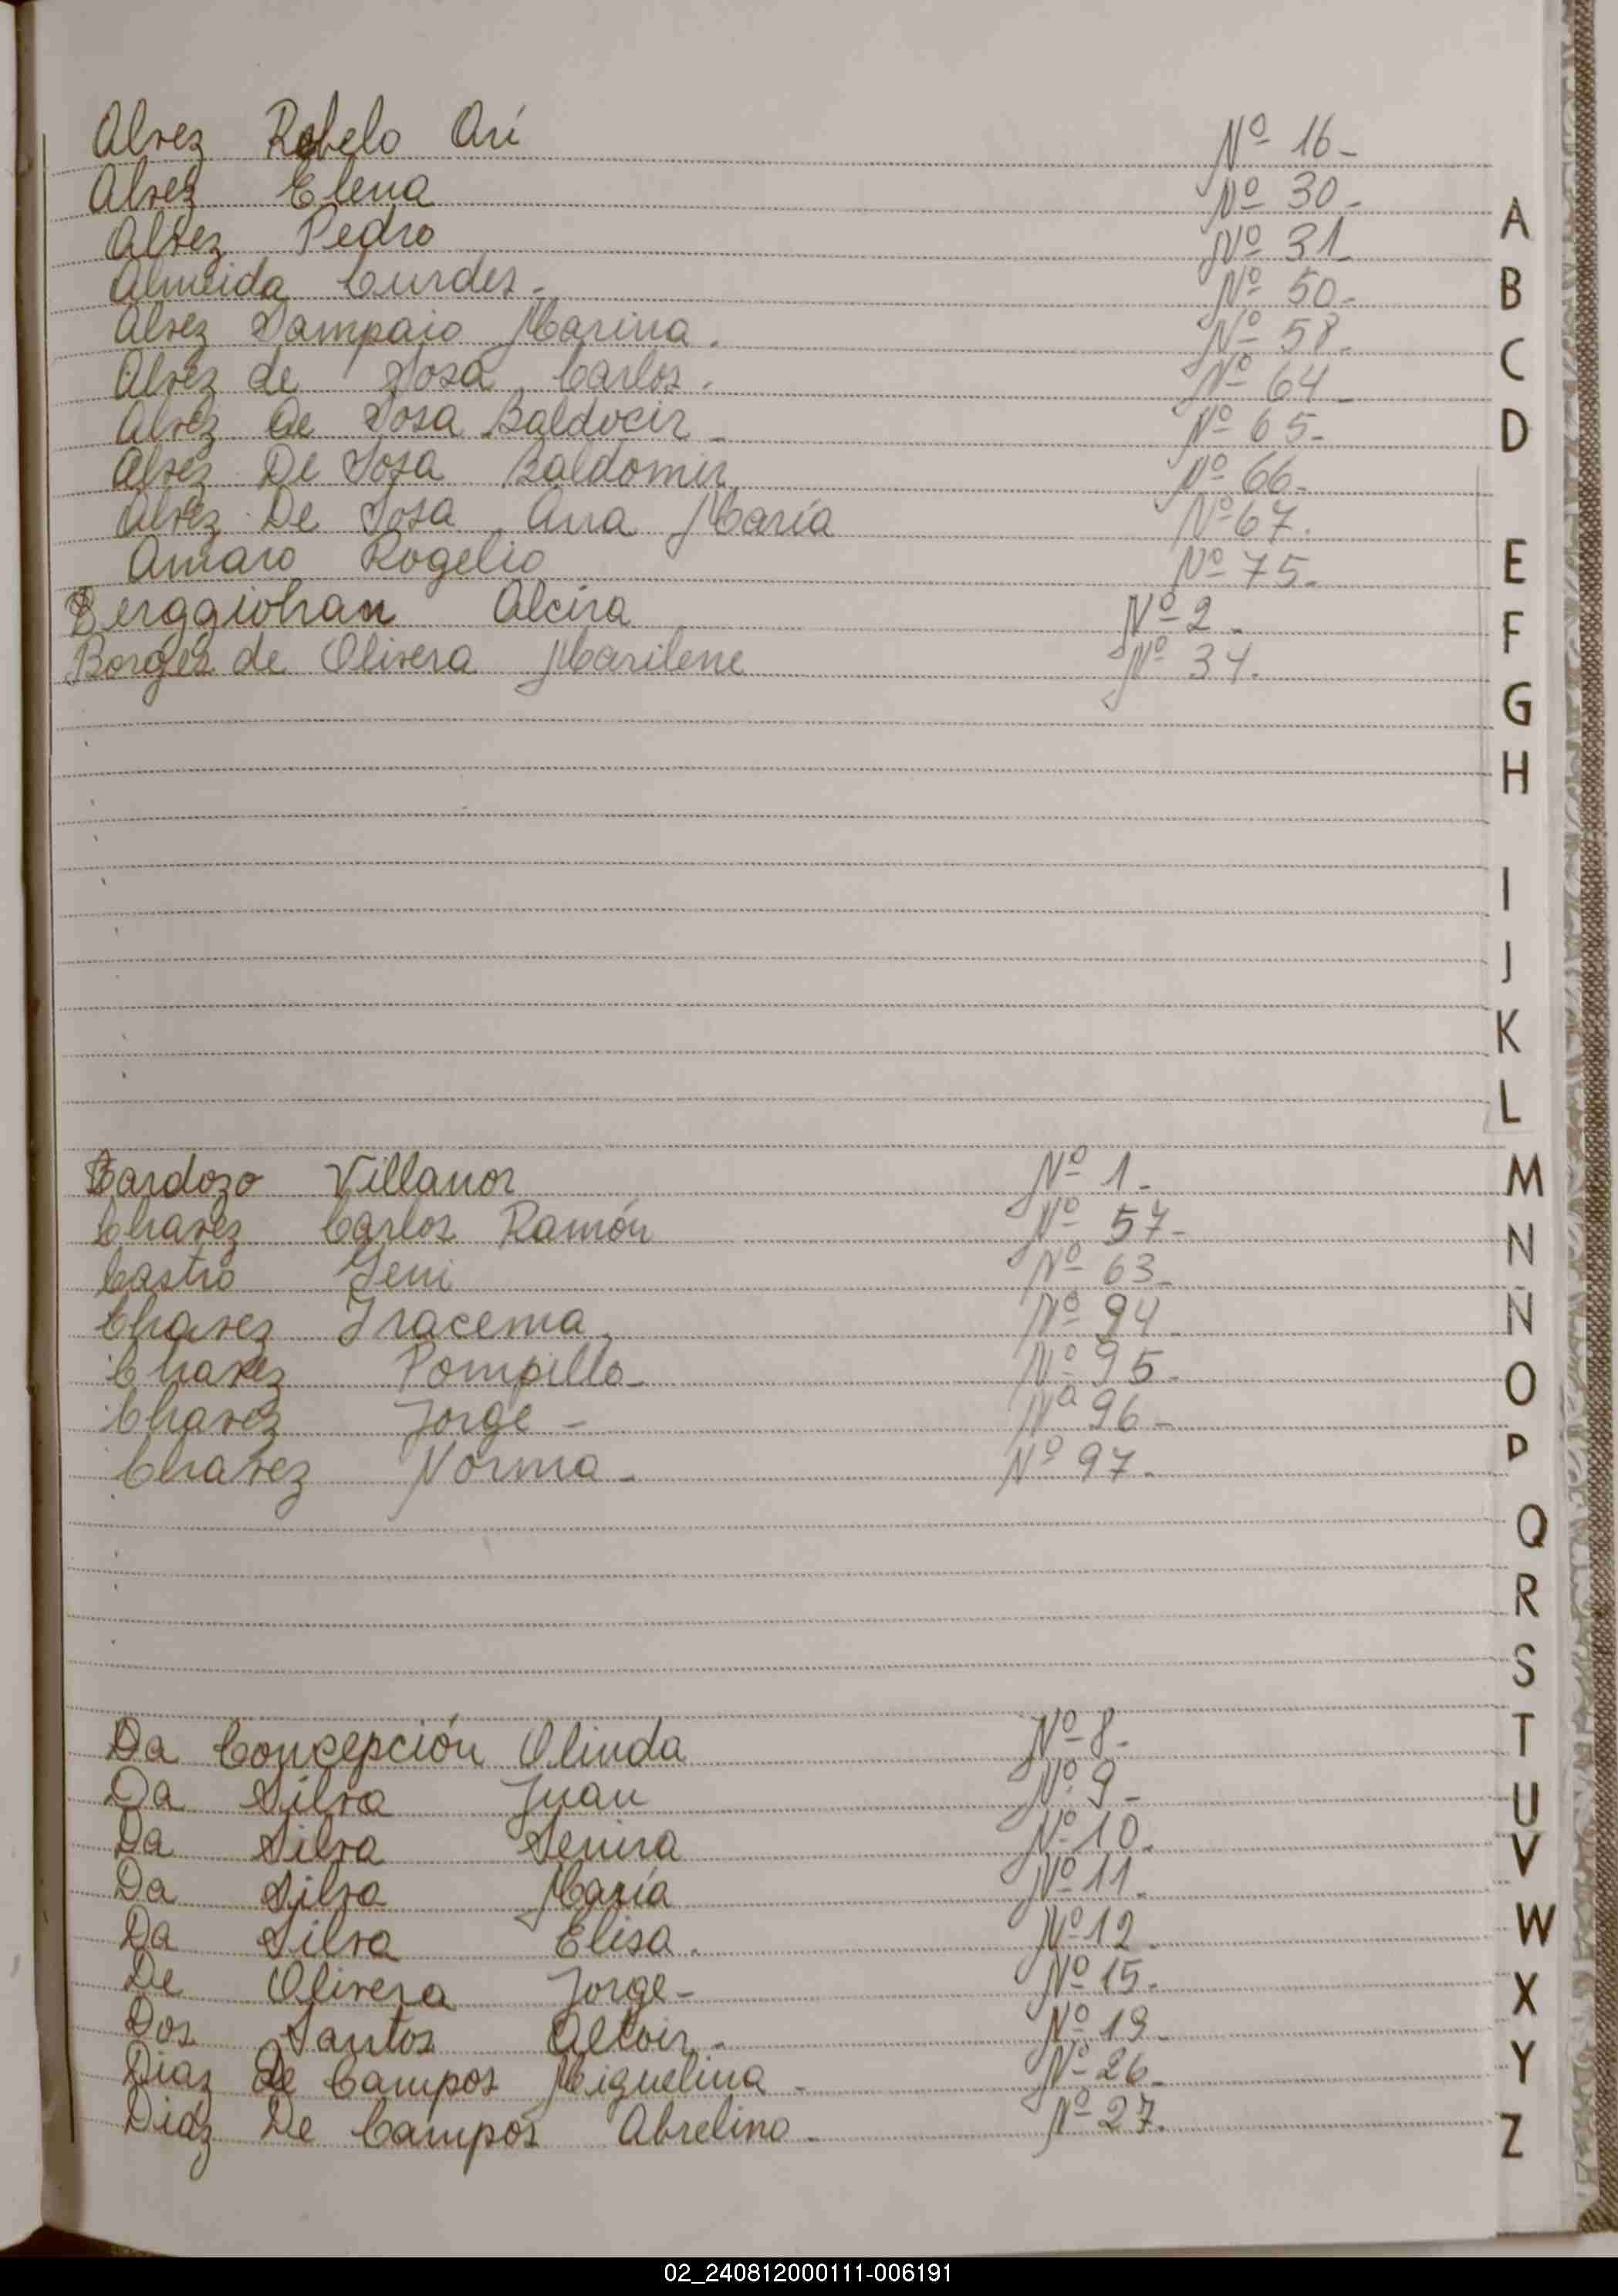 Alvez Rebelo Arí Nº 16-
Alvez Elena Nº 30-
Alvez Pedro Nº 31-
Almeida Curdes- Nº 50-
Alvez Sampaio Marina. Nº 58-
Alvez de Sosa Carlos. Nº 64-
Alvez De Sosa Baldocir- Nº 65-
Alvez De Sosa Baldomir Nº 66-
Alvez De Sosa Ana María Nº 67.
Amaro Rogelio Nº 75-
Berggiohan Alcira Nº 2-
Borges de Olivera Marilene Nº 34.
Cardozo Villanor Nº 1-
Chavez Carlos Ramón Nº 57-
Castro Jeni Nº 63-
Chavez Iracema Nº 94-
Chavez Pompillo- Nº 95-
Chavez Jorge- Nº 96-
Chavez Norma- Nº 97-
Da Concepción Olinda Nº 8-
Da Silva Juan Nº 9-
Da Silva Senira Nº 10.
Da Silva María Nº 11.
Da Silva Elisa. Nº 12-
De Olivera Jorge- Nº 15-
Dos Santos Altoir- Nº 19-
Diaz De Campos Miguelina- Nº 26-
Diaz De Campos Abrelino- Nº 27.
A
B
C
D
E
F
G
H
I
J
K
L
M
N
Ñ
O
P
Q
R
S
T
U
V
W
X
Y
Z
02_240812000111-006191